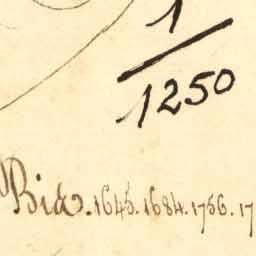 1
1250
Bia. 1645. 1684. 1756. 17